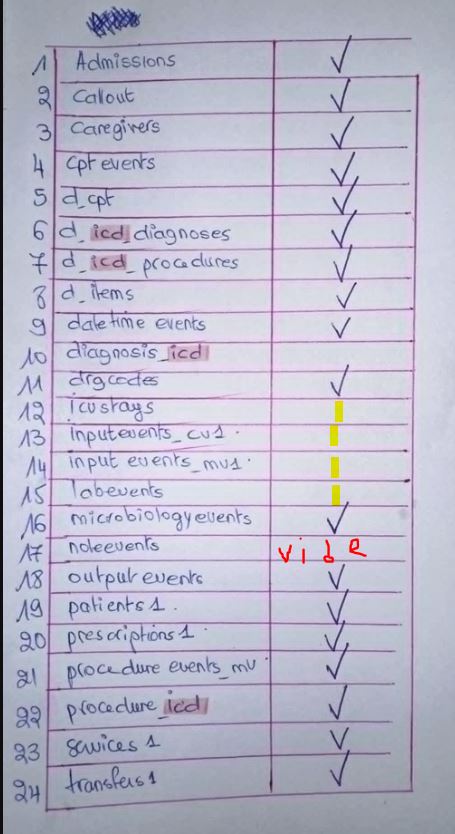 1 Admissions ✓
2 Callout ✓
3 Caregivers ✓
4 Cpt events ✓
5 d_cpt ✓
6 d_icd_diagnoses ✓
7 d_icd_procedures ✓
8 d_items ✓
9 datetime events ✓
10 diagnosis_icd
11 drgcodes ✓
12 icustays
13 inputevents_cv1.
14 input events_mv1.
15 labevents
16 microbiologyevents ✓
17 noteevents vide
18 output events ✓
19 patients 1. ✓
20 prescriptions 1. ✓
21 procedure events_mv. ✓
22 procedure_icd ✓
23 services 1 ✓
24 transfers 1 ✓